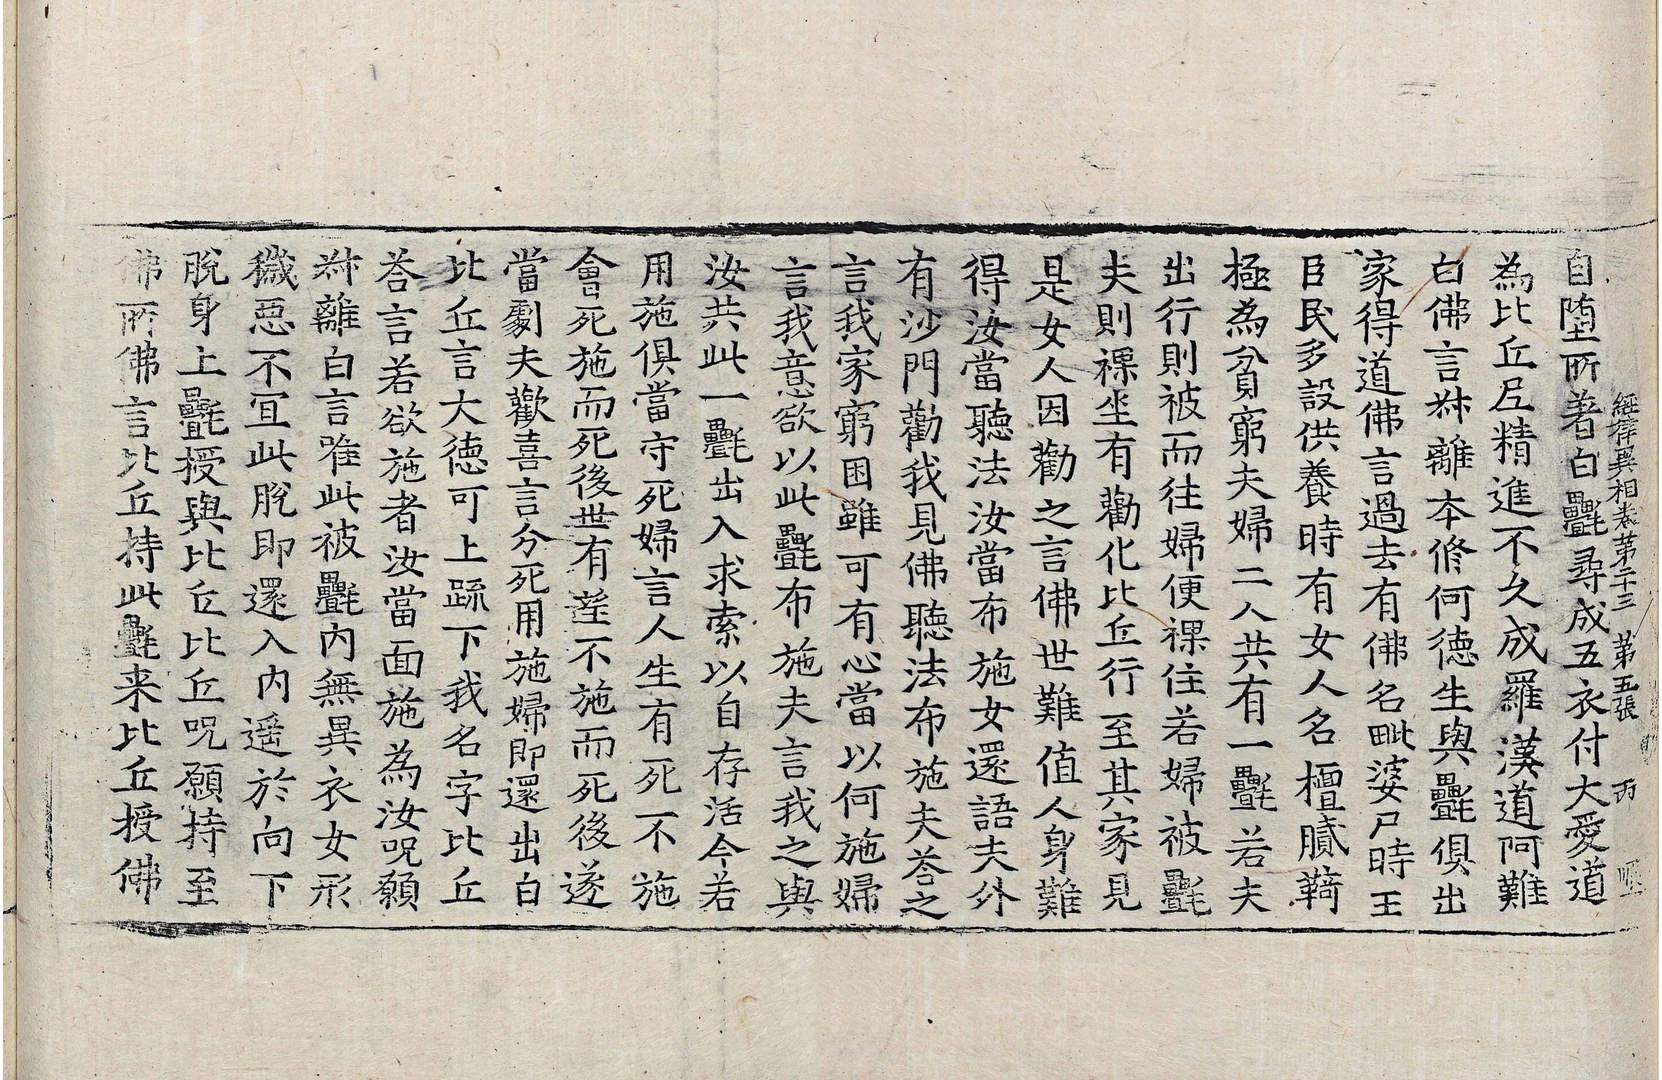 經律異相卷第二十三 第五張 丙
自墮所著白氎尋成五衣付大愛道
為比丘尼精進不久成羅漢道阿難
白佛言叔離本修何德生與氎俱出
家得道佛言過去有佛名毗婆尸時王
臣民多設供養時有女人名檀膩䩭
極為貧窮夫婦二人共有一氎若夫
出行則被而往婦便裸住若婦被氎
夫則裸坐有勸化比丘行至其家見
是女人因勸之言佛世難值人身難
得汝當聽法汝當布施女還語夫外
有沙門勸我見佛聽法布施夫荅之
言我家窮困雖可有心當以何施婦
言我意欲以此氎布施夫言我之與
汝共此一氎出入求索以自存活今若
用施俱當守死婦言人生有死不施
會死施而死後世有𦰏不施而死後遂
當劇夫歡喜言分死用施婦即還出白
比丘言大德可上䟽下我名字比丘
荅言若欲施者汝當面施為汝呪願
叔離白言唯此被氎內無異衣女形
穢惡不宜此脫即還入內遥於向下
脫身上氎授與比丘比丘呪願持至
佛所佛言比丘持此氎来比丘授佛